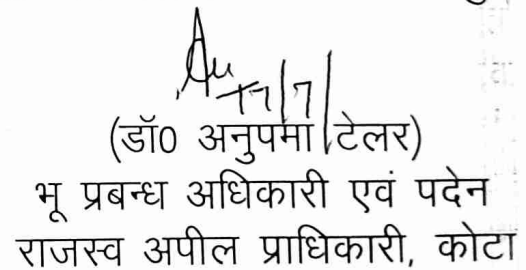 17/7/
(डॉ0 अनुपमा टेलर)
भू प्रबन्ध अधिकारी एवं पदेन
राजस्व अपील प्राधिकारी, कोटा